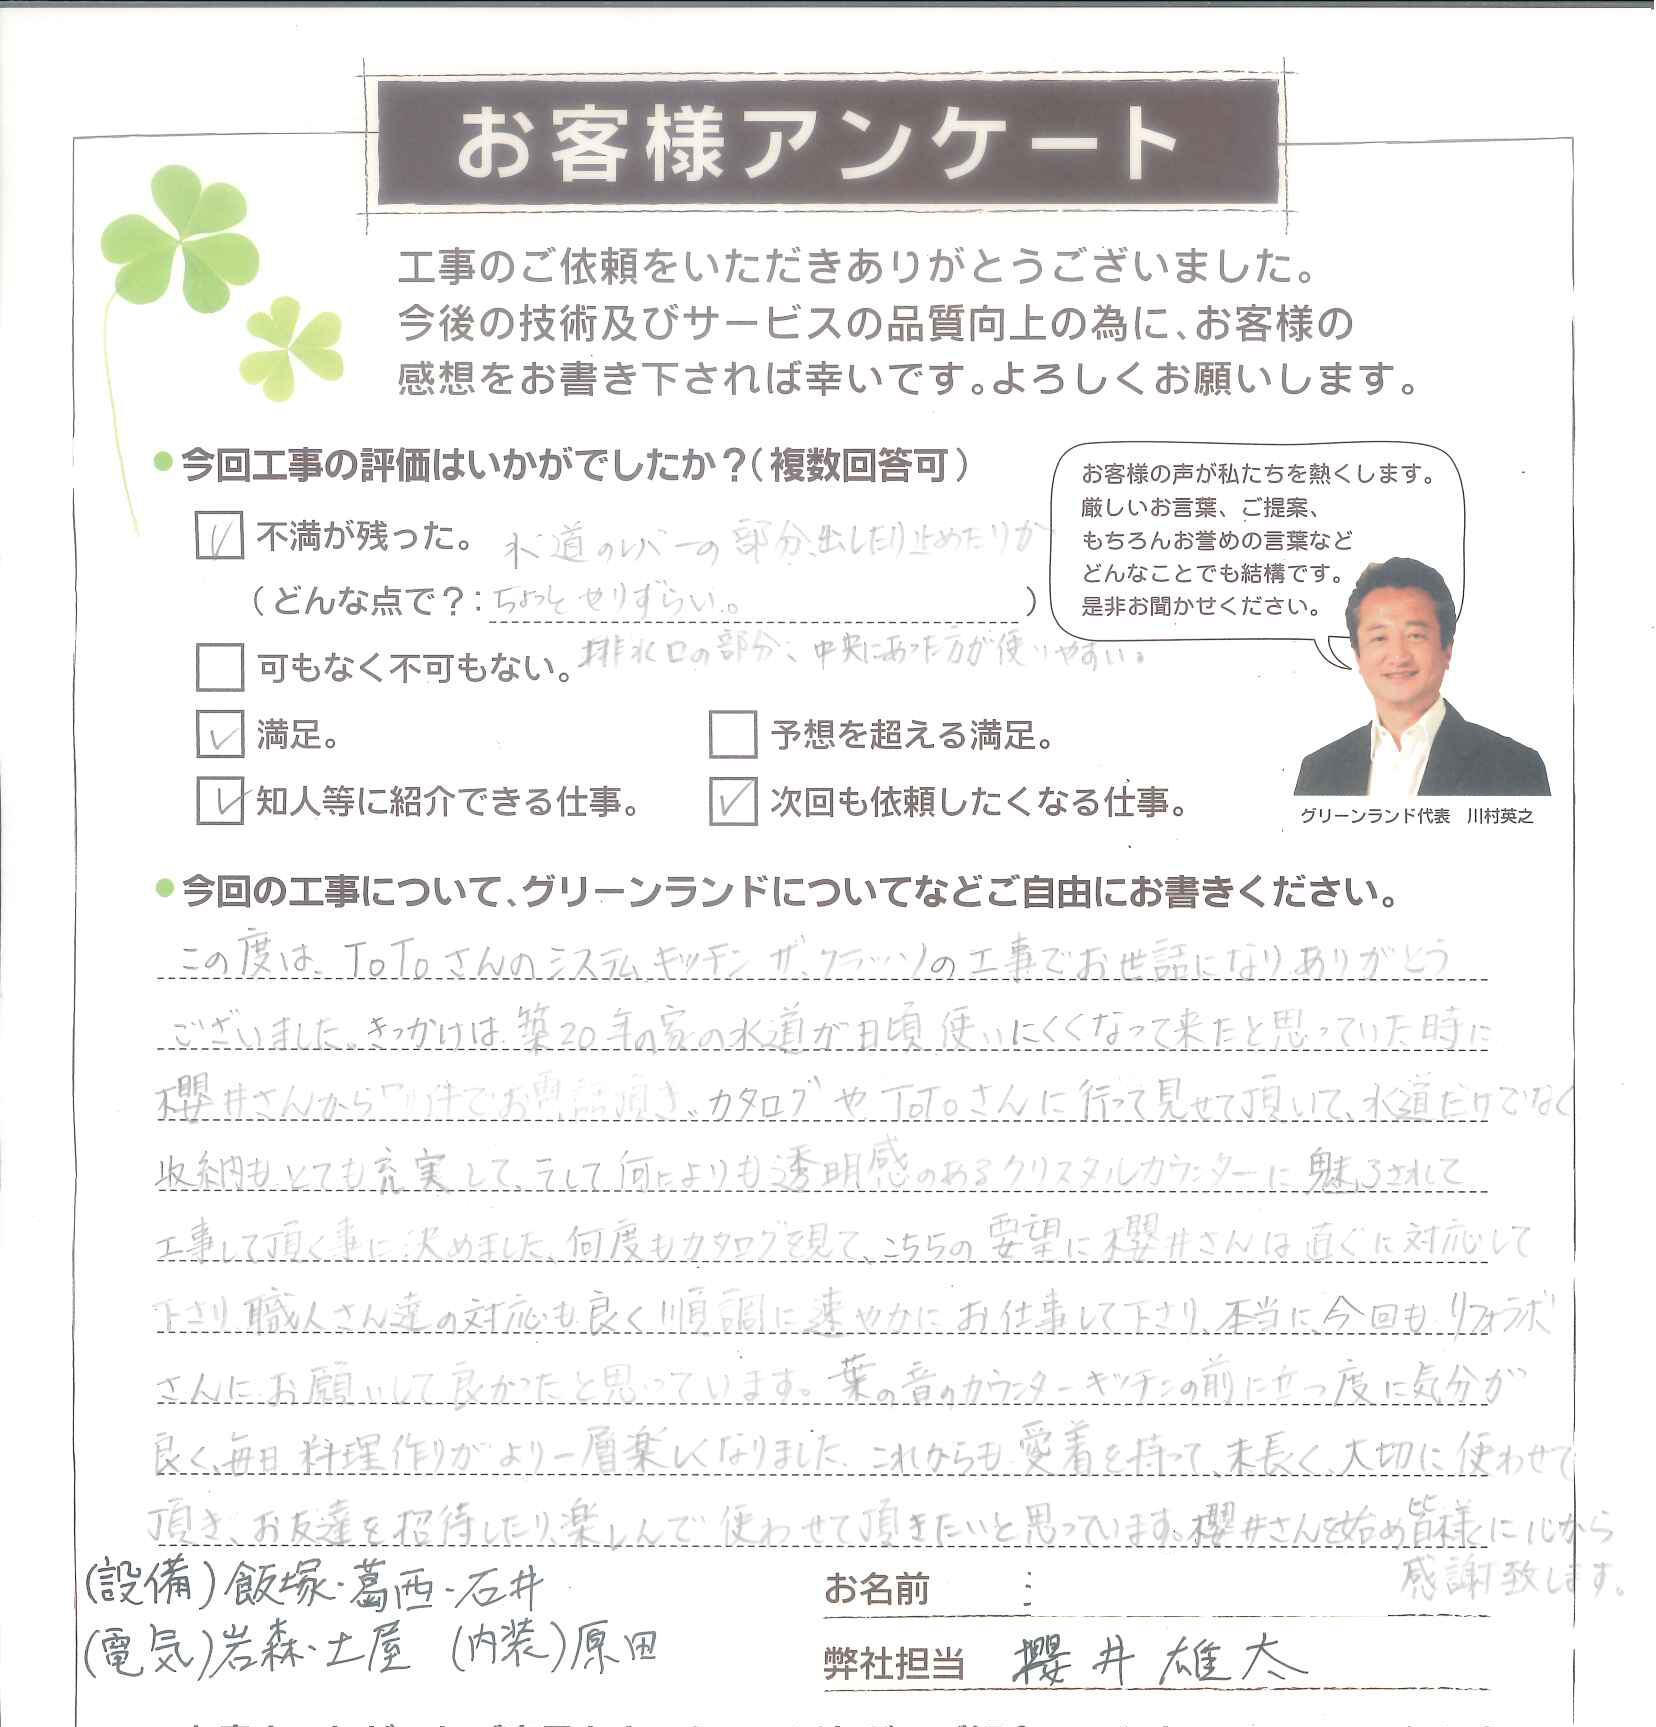 お客様アンケート
工事のご依頼をいただきありがとうございました。
今後の技術及びサービスの品質向上の為に、お客様の
感想をお書き下されば幸いです。よろしくお願いします。
今回工事の評価はいかがでしたか？（複数回答可）
不満が残った。 水道のレバーの部分、出したり止めたりが
（どんな点で？：ちょっとやりずらい。）
排水口の部分、中央にあった方が使いやすい。
可もなく不可もない。
満足。
予想を超える満足。
知人等に紹介できる仕事。
次回も依頼したくなる仕事。
お客様の声が私たちを熱くします。
厳しいお言葉、ご提案、
もちろんお誉めの言葉など
どんなことでも結構です。
是非お聞かせください。
グリーンランド代表 川村英之
今回の工事について、グリーンランドについてなどご自由にお書きください。
この度は、TOTOさんのシステムキッチン ザ、クラッソの工事でお世話になりありがとう
ございました。きっかけは築20年の家の水道が日頃使いにくくなって来たと思っていた時に
櫻井さんから 件でお電話頂き、カタログやTOTOさんに行って見せて頂いて、水道だけでなく
収納もとても充実して、そして何よりも透明感のあるクリスタルカウンターに魅了されて
工事して頂く事に決めました、何度もカタログを見て、こちらの要望に櫻井さんは直ぐに対応して
下さり職人さん達の対応も良く順調に速やかにお仕事して下さり、本当に、今回もリフォラボ
さんにお願いして良かったと思っています。葉の音のカウンターキッチンの前に立つ度に気分が
良く、毎日料理作りがより一層楽しくなりました。これからも愛着を持って、末長く、大切に使わせて
頂き、お友達を招待したり、楽しんで使わせて頂きたいと思っています。櫻井さんを始め皆様に心から
感謝致します。
(設備)飯塚・葛西・石井
(電気)岩森・土屋 (内装)原田
お名前 ：
弊社担当 櫻井 雄太